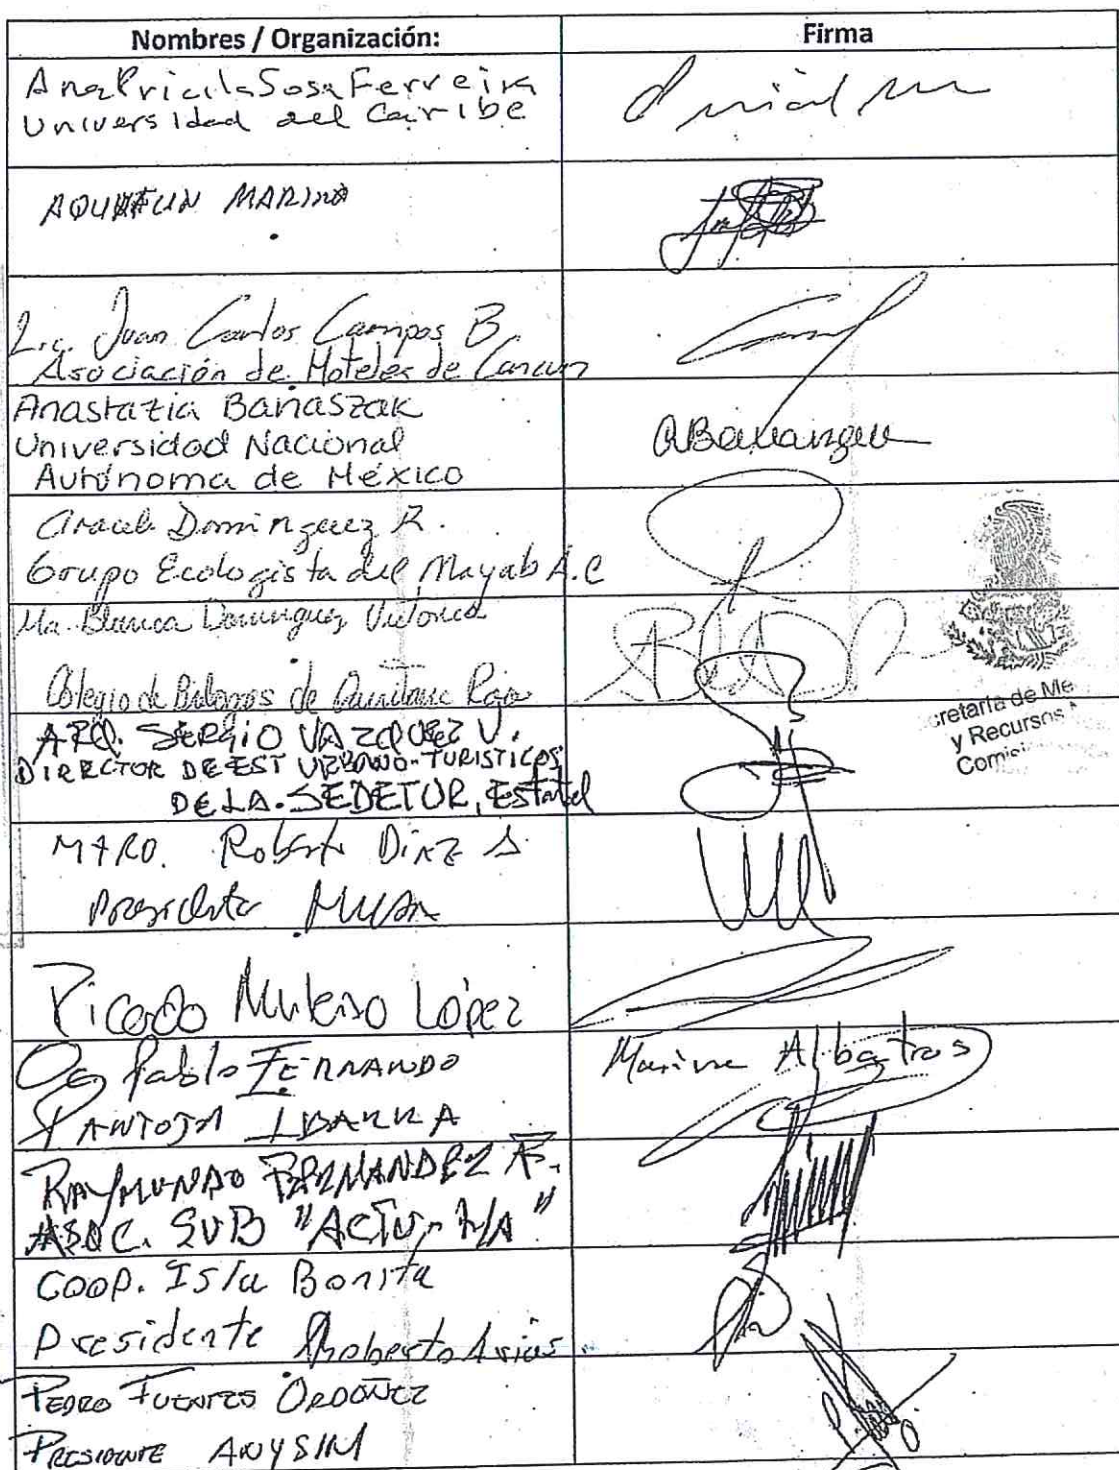 Nombres / Organización:
Firma
Ana Pricila Sosa Ferreira
Universidad del Caribe
MARINA
Lic. Juan Carlos Campos B.
Asociación de Hoteles de Cancun
Anastazia Banaszak
Universidad Nacional
Autónoma de México
Araceli Dominguez R.
Grupo Ecologista del Mayab A.C
Ma. Blanca Dominguez
Colegio de Biologos de Quintana Roo
ARQ. SERGIO VAZQUEZ V.
DIRECTOR DE EST URBANO-TURISTICOS
DE LA SEDETUR, Estatal
cretaría de Me
y Recursos
Comisi
MTRO. Roberto Diaz S.
Presidente
López
Pablo FERNANDO
PANTOJA IBARRA
Marina Albatros
RAYMUNDO FERNANDEZ F.
ASOC. SUB
COOP. Isla Bonita
Presidente Roberto Arias
PEDRO FUENTES ORDOÑEZ
PRESIDENTE ANYSIM